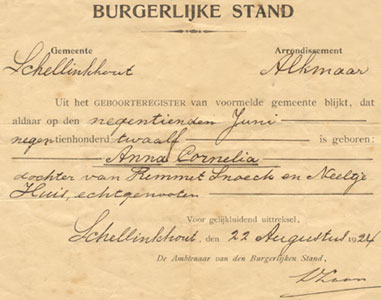 BURGERLIJKE STAND
Gemeente Arrondissement
Schellinkhout Alkmaar
Uit het GEBOORTEREGISTER van voormelde gemeente blijkt, dat
aldaar op den negentienden Juni
negentienhonderd twaalf is geboren:
Anna Cornelia
dochter van Remmet Snoeck en Neeltje
Huis, echtgenooten
Voor gelijkluidend uittreksel,
Schellinkhout, den 22 Augustus 1924
De Ambtenaar van den Burgerlijken Stand,